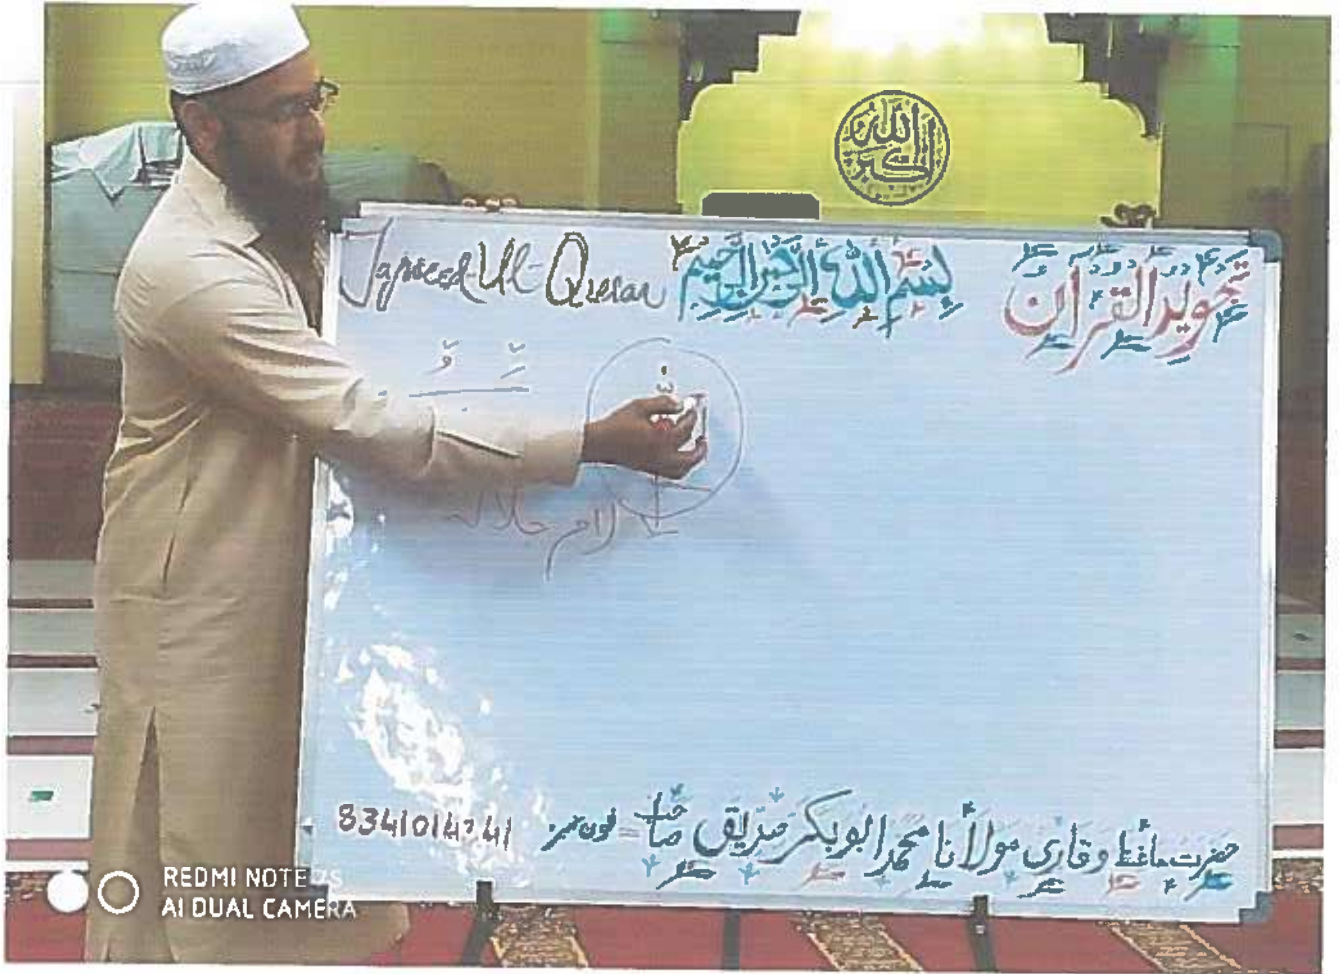 الله اكبر
Tajweed-Ul-Quran بِسْمِ اللّٰهِ الرَّحْمٰنِ الرَّحِيْمِ تجوید القرآن
لام جلالہ
حضرت حافظ و قاری مولانا محمد ابوبکر صدیق صاحب = فون نمبر
REDMI NOTE 7S
AI DUAL CAMERA